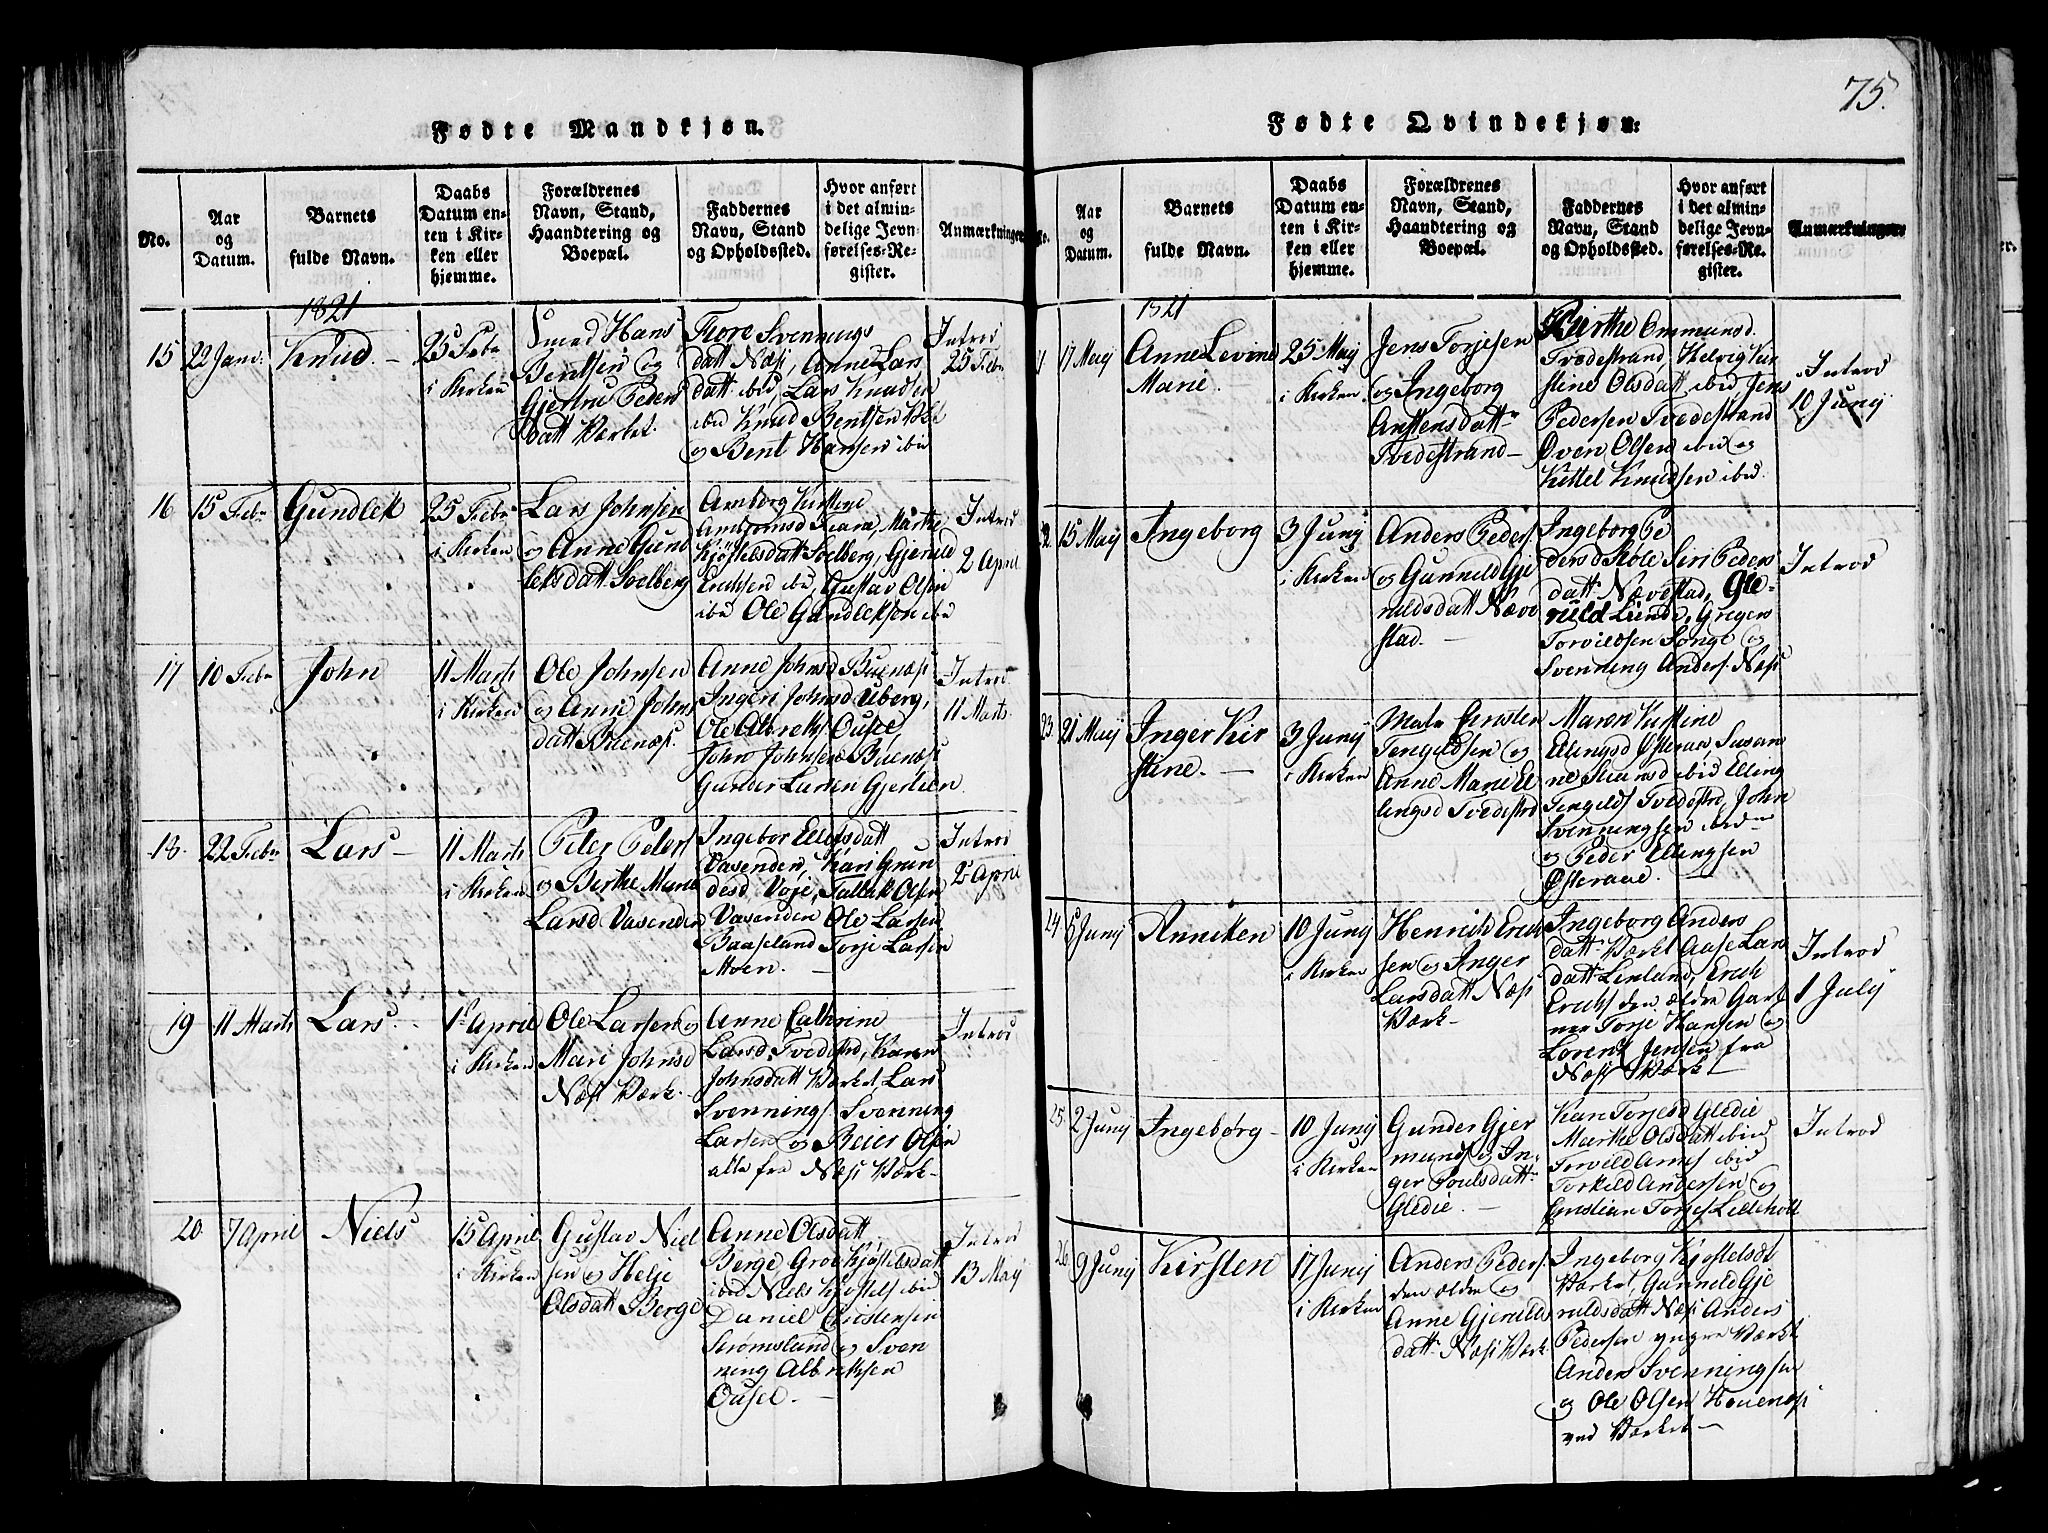 75.
Fødte Mandkjøn.
No.
Aar
og
Datum.
Barnets
fulde Navn.
Daabs
Datum en-
ten i Kir-
ken eller
hjemme.
Forældrenes
Navn, Stand,
Haandtering og
Boepæl.
Faddernes
Navn, Stand
og Opholdssted.
Hvor anført
i det almin-
delige Jevn-
førelses-Re-
gister.
Anmærkninger
1821
15
22 Janr.
Knud. –
25 Febr
i Kirken
Smed Hans
Bentsen og
Gjertru Peders
datt Værket.
Tiore Svennings
datt Næs, Anne Lars
datt ibid, Lars Knudsen
ibid Knud Bentsen
og Bent Hansen ibid
Introd
25 Febr
16
15 Febr
Gundlek
25 Febr
i Kirken
Lars Johnsen
og Anne Gund
leksdatt Solberg
Kjøstelsdatt Solberg, Gjeruld
Erichsen ibd, Gustav Olsen
ibid Ole Gundleksen ibid
Introd
2 April
17
10 Febr
John
11 Marts
i Kirken
Ole Johnsen
og Anne Johns
datt Buenæs.
Anne Johnsd Buenæs
Ingeri Johnsd Uberg,
Ole Albrekts Ousel
John Johnsen Buenæs
Gunder Larsen Gjerseien.
Introd
11 Marts.
18.
22 Febr
Lars –
11 Marts
i Kirken
Peter Peters
og Berthe Marie
Larsd. Vasenden
Ingebor Ellefsdatt
Vasenden, Kari Grun
desd Voje, Tallek Olsen
Vasenden Ole Larsen
Baaseland Torje Larsen
Moen. –
Introd
2 April
19
11 Marts
Lars. –
1st April
i Kirken
Ole Larsen og
Mari Johnsd
Næs Værk. –
Anne Cathrine
Larsd. Tvedestrd, Karen
Johnsdatt Værket, Lars
Svennings. Svenning
Larsen og Beier Olsen
alle fra Næs Værk –
Introd
20.
7 April
Niels
15 April
i Kirken
Gustav Niel
sen og Helje
Olsdatt Berge
Anne Olsdatt
Berge, Groe Kjøstelsdatt
ibid Niels Kjøstels ibid
Daniel Christensen
Strømsland og Sven
ning Albrektsen
Ousel. –
Introd
13 May
Fødte Qvindekjøn:
Aar
og
Datum.
Barnets
fulde Navn.
Daabs
Datum en-
ten i Kir-
ken eller
hjemme.
Forældrenes
Navn, Stand,
Haandtering og
Boepæl.
Faddernes
Navn, Stand
og Opholdssted.
Hvor anført
i det almin-
delige Jevn-
førelses-Re-
gister.
Anmærkninger
1821
17 May
Anne Levine
Marie.
25 May
i Kirken.
Jens Torjesen
og Ingeborg
Anstensdattr
Tvedestrand –
Birthe Ommunsd.
Tvedestrand, Helvig Kir
stine Olsdatt ibid Jens
Pedersen Tvedestrand
Øven Olsen ibid og
Kittel Knudsen ibid.
Introd
10 Junij
15 May
Ingeborg
3 Junij
i Kirken
Anders Peders.
og Gunnild Gje
ruldsdatt Næve
stad. –
Ingeborg Pe
dersd Hole Siri Peders
datt. Nævestad, Gje-
ruld Lunde, Gregers
Torvildsen Songe og
Svenning Anders. Næs
Introd
23.
21 May
Inger Kir
stine. –
3 Junij
i Kirken
Tengeldsen og
Anne Marie El
lingsd Tvedestrd
Maren Kistine
Ellingsd Østeraae, Susan
ne ibid Elling
Tengelds Tvedestrd, John
Svenningsen ibid –
og Peder Ellingsen
Østeraae. –
24.
5 Junij
Anniken
10 Junij
i Kirken
Henrich Erich
sen og Inger
Larsdatt Næs
Værk –
Ingeborg Anders
datt. Værket Aase Lars
datt Lenland, Erich
Erichs den ældre Gart
ner Torje Hansen og
Lorents Jensen fra
Næs Værk –
Introd
1 July
25.
2 Junij
Ingebørg –
10 Junij
i Kirken
Gunder Gjer
munds og In-
ger Poulsdatt.
Gledie. –
Kari Torjesd Gledie
Marthe Olsdatt ibid
Torvild Arnes ibid
Torkild Andersen og
Cristian Torjes Lilleholt
Introd
26.
9 Junij
Kirsten
17 Junij
i Kirken
Anders Peders.
den ældre og
Anne Gjerulds
datt. Næs Værk
Ingeborg Kjøstelsdt
Værket, Gunneld Gje
ruldsdatt Næs Anders
Pedersen yngre Værket
Anders Svenningsen
og Ole Olsen Houenæs
ved Værket –